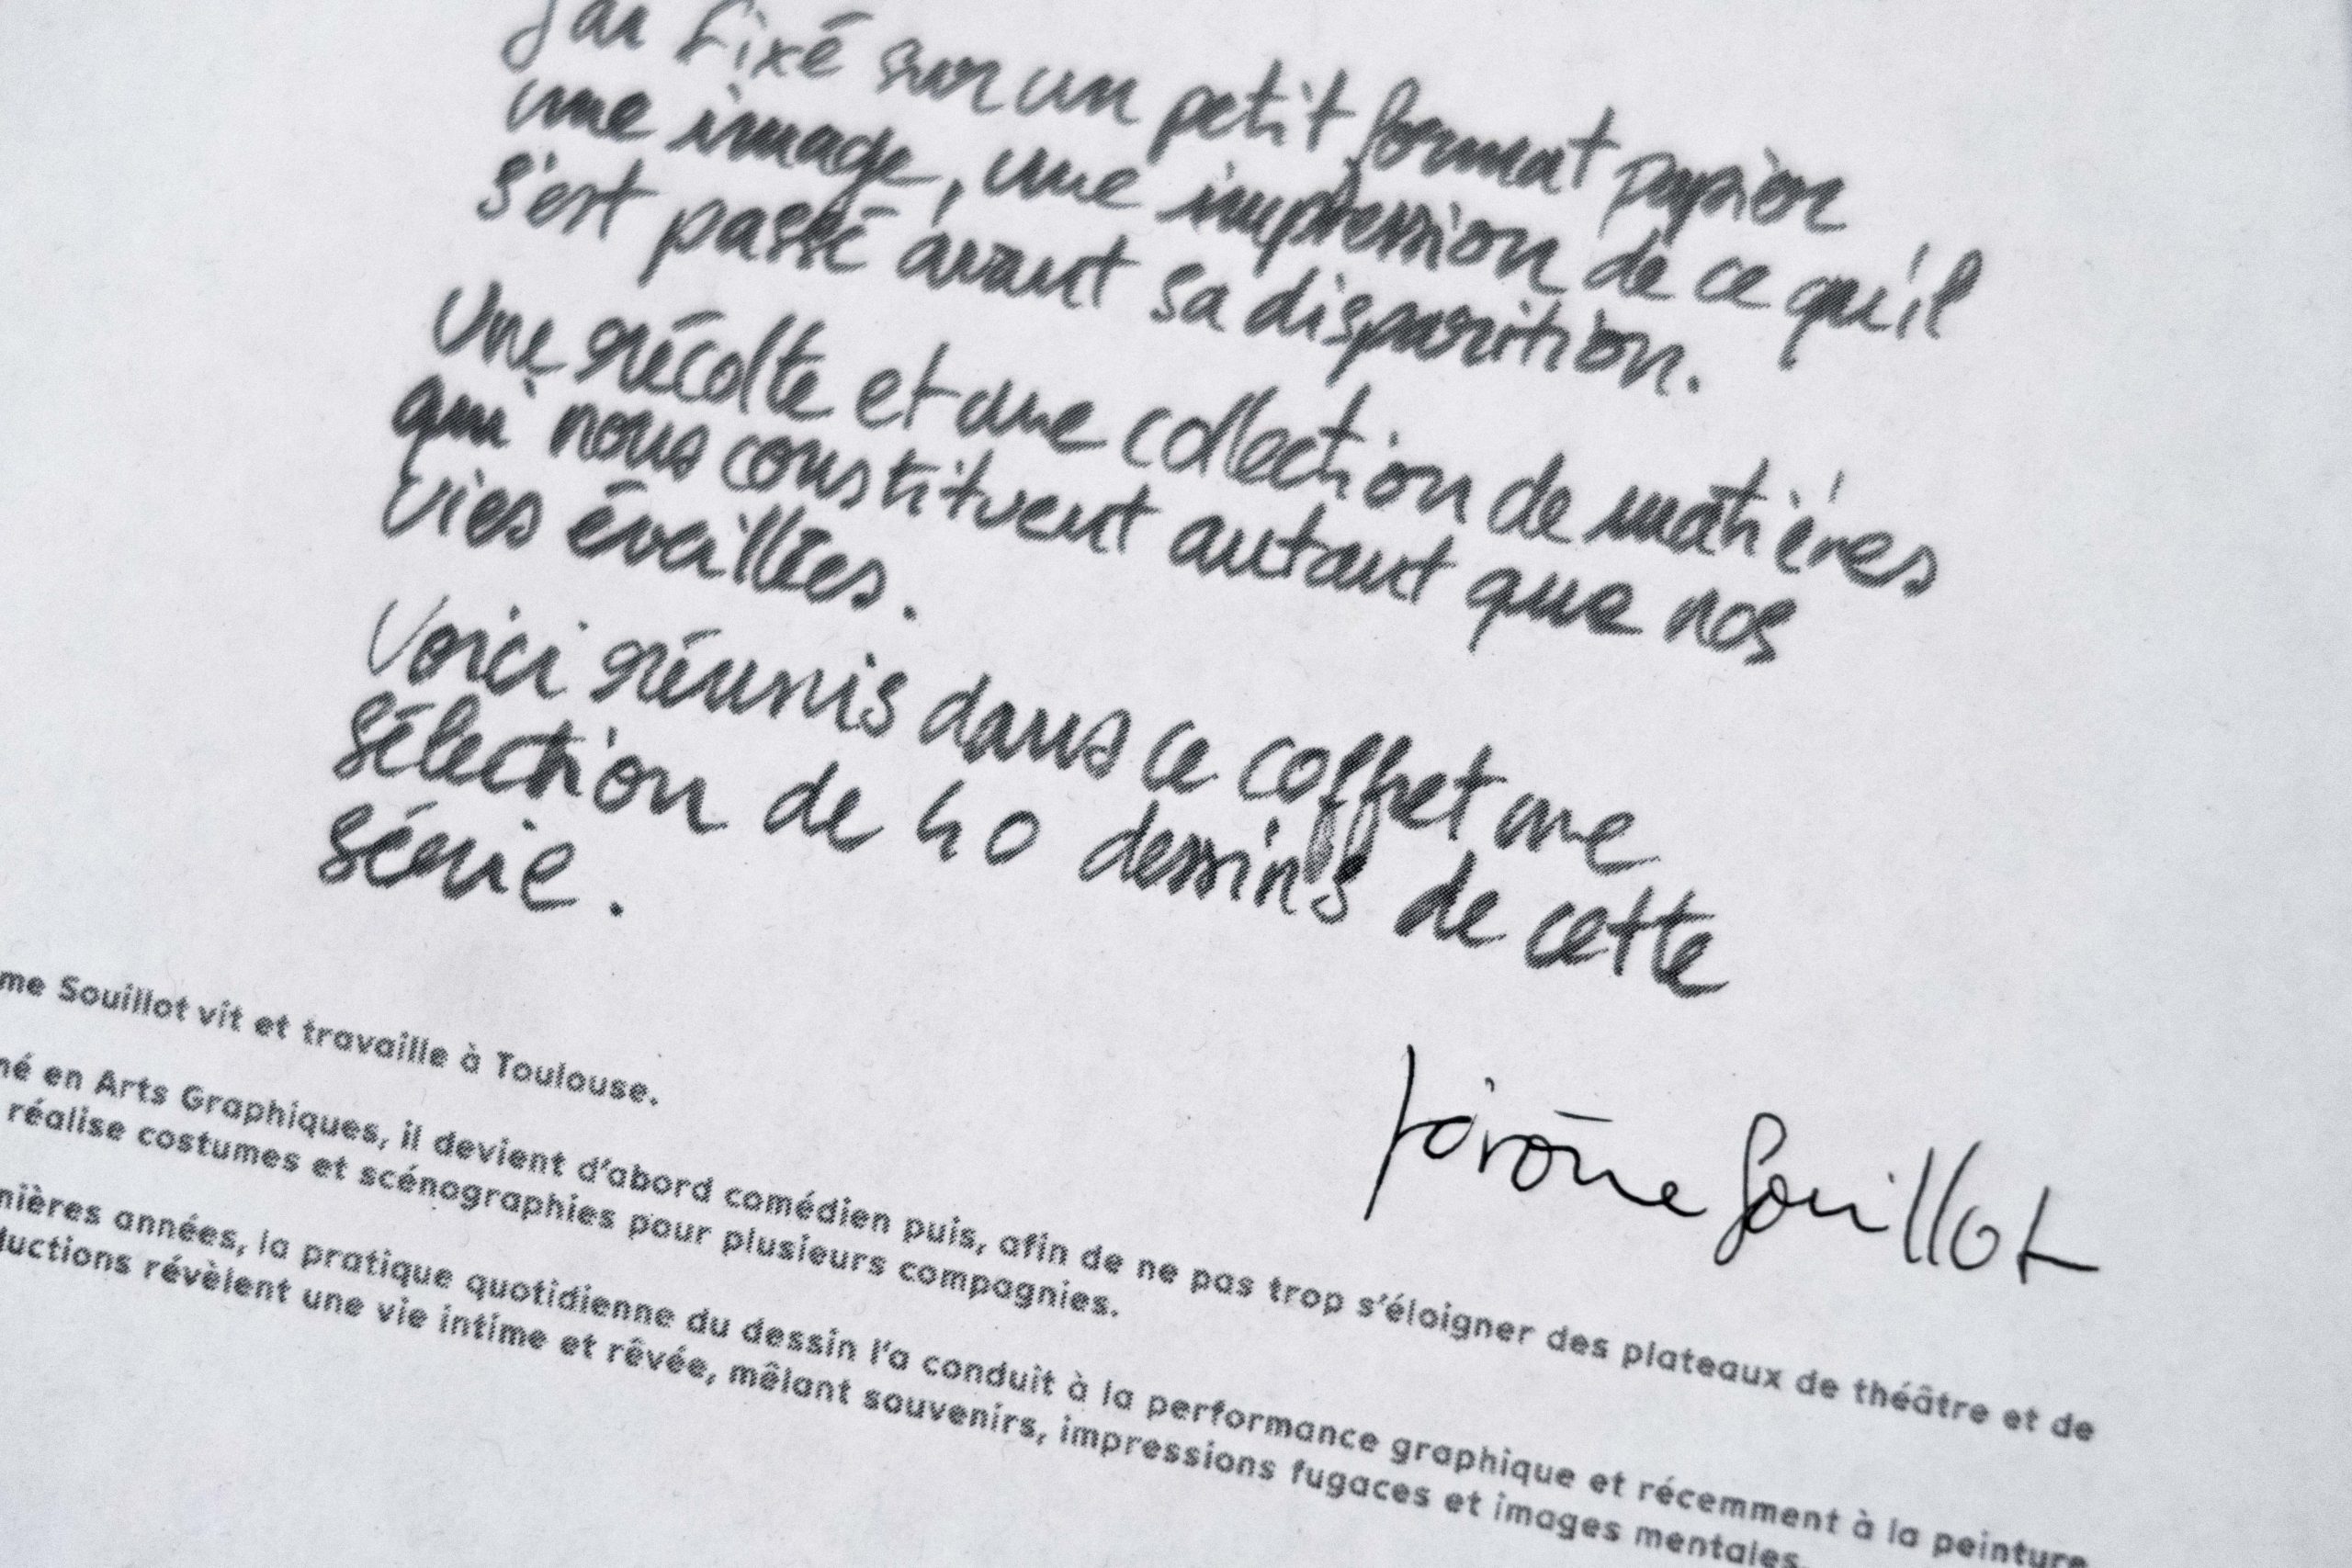 J'ai fixé sur un petit format papier
une image, une impression de ce qu'il
s'est passé avant sa disparition.
Une récolte et une collection de matières
qui nous constituent autant que nos
vies éveillées.
Voici réunis dans ce coffret une
sélection de 40 dessins de cette
série.
Jérôme Souillot
me Souillot vit et travaille à Toulouse.
né en Arts Graphiques, il devient d'abord comédien puis, afin de ne pas trop s'éloigner des plateaux de théâtre et de
réalise costumes et scénographies pour plusieurs compagnies.
nières années, la pratique quotidienne du dessin l'a conduit à la performance graphique et récemment à la peinture
ductions révèlent une vie intime et rêvée, mêlant souvenirs, impressions fugaces et images mentales.